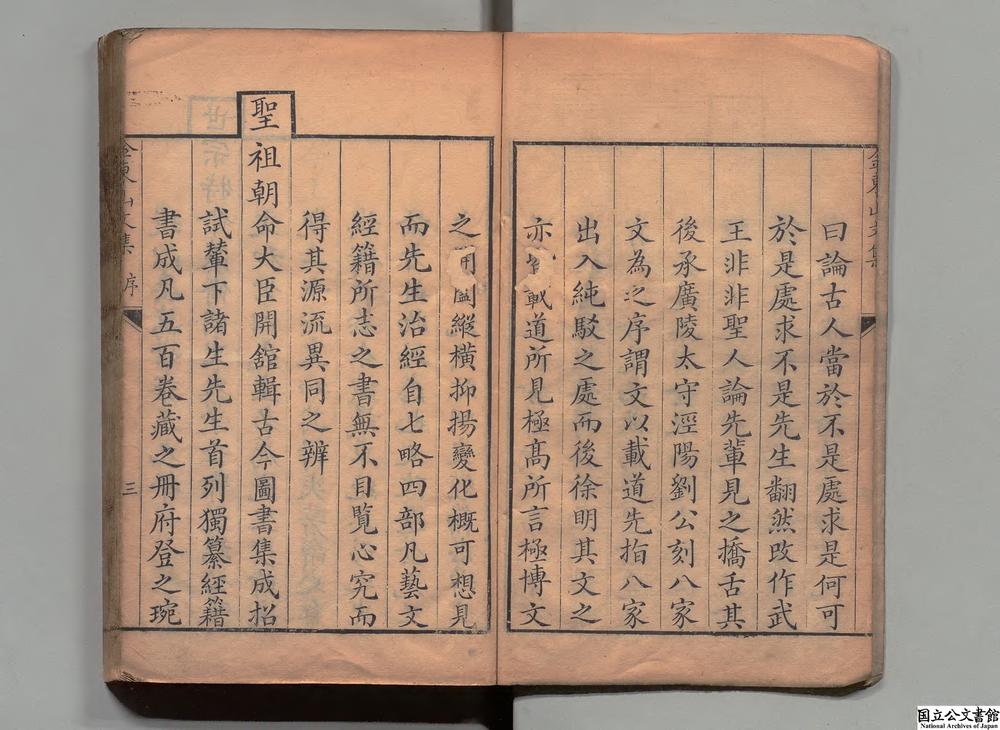 曰論古人當於不是處求是何可
於是處求不是先生翻然改作武
王非非聖人論先輩見之撟舌其
後承廣陵太守涇陽劉公刻八家
文為之序謂文以載道先指八家
出入純駁之處而後徐明其文之
亦道所見極高所言極博文
之闔縱橫抑揚變化概可想見
而先生治經自七略四部凡藝文
經籍所志之書無不目覽心究而
得其源流異同之辨
聖祖朝命大臣開舘輯古今圖書集成招
試輦下諸生先生首列獨纂經籍
書成凡五百卷藏之冊府登之琬
金東山文集 序 三
国立公文書館
National Archives of Japan